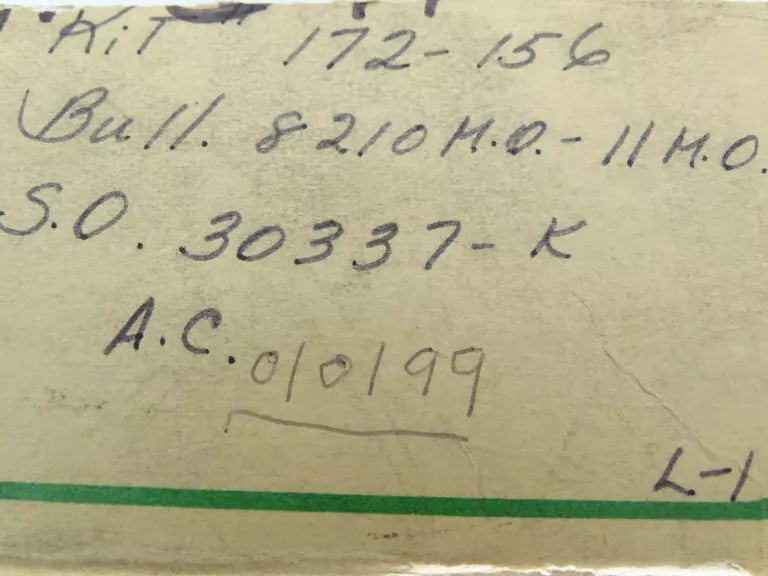 Kit 172-156
Bull. 8210 M.O. - 11 M.O.
S.O. 30337-K
A.C. 010199
L-1